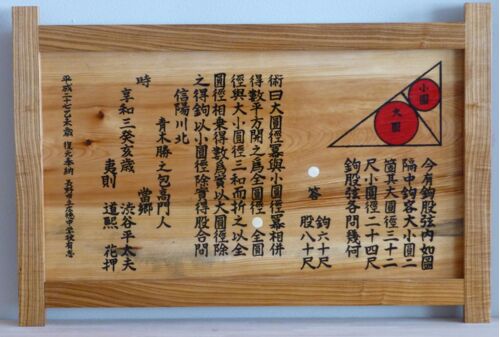 小圓
大圓
今有鉤股弦内如圖
隔中鉤容大小圓二
箇其大圓径三十二
尺小圓径二十四尺
鉤股弦各問幾何
答 鉤六十尺
股八十尺
術曰大圓径冪與小圓径冪相併
得数平方開之為全圓径 全圓
径與大小圓径三和而折之以全
圓径相乗得数為實以大圓径除
之得鉤以小圓径除實得股合問
信陽川北
青木勝之 高門人
當郷
時 渋谷平太夫
享和三癸亥歳
夷則 道 花押
平成二十七乙未歳 復元奉納 長野市立 学校有志